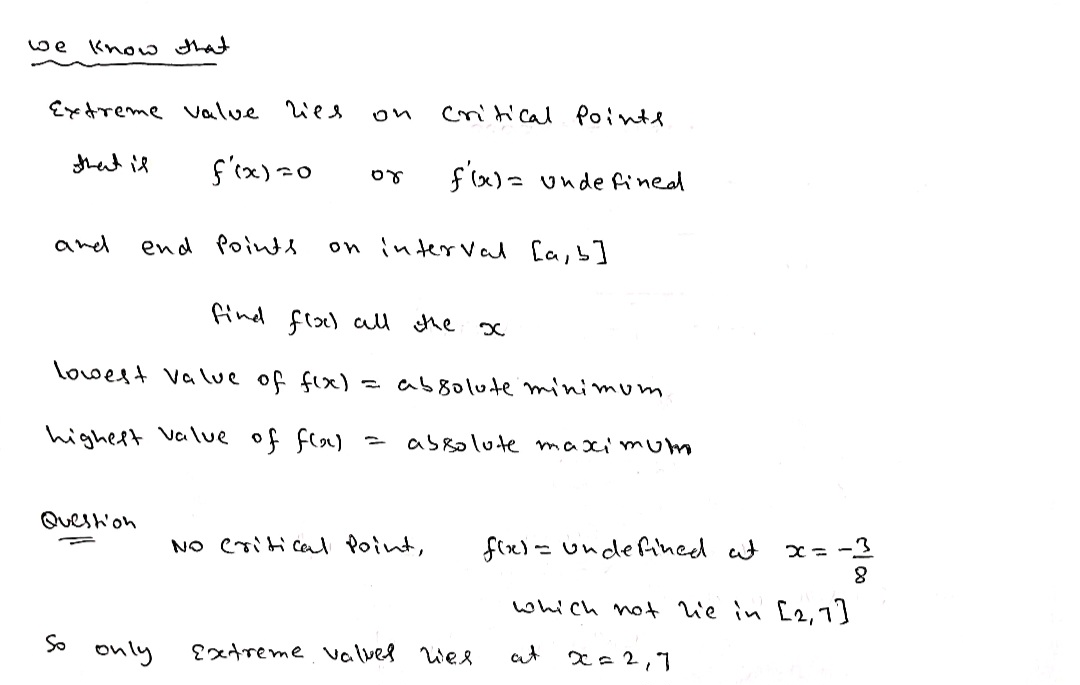 we know that
Extreme value lies on critical points
that is f'(x)=0 or f'(x)= undefined
and end points on interval [a,b]
find f(x) all the x
lowest value of f(x) = absolute minimum
highest value of f(x) = absolute maximum
Question
No critical point, f(x)= undefined at x = -3/8
which not lie in [2,7]
So only Extreme values lies at x=2,7